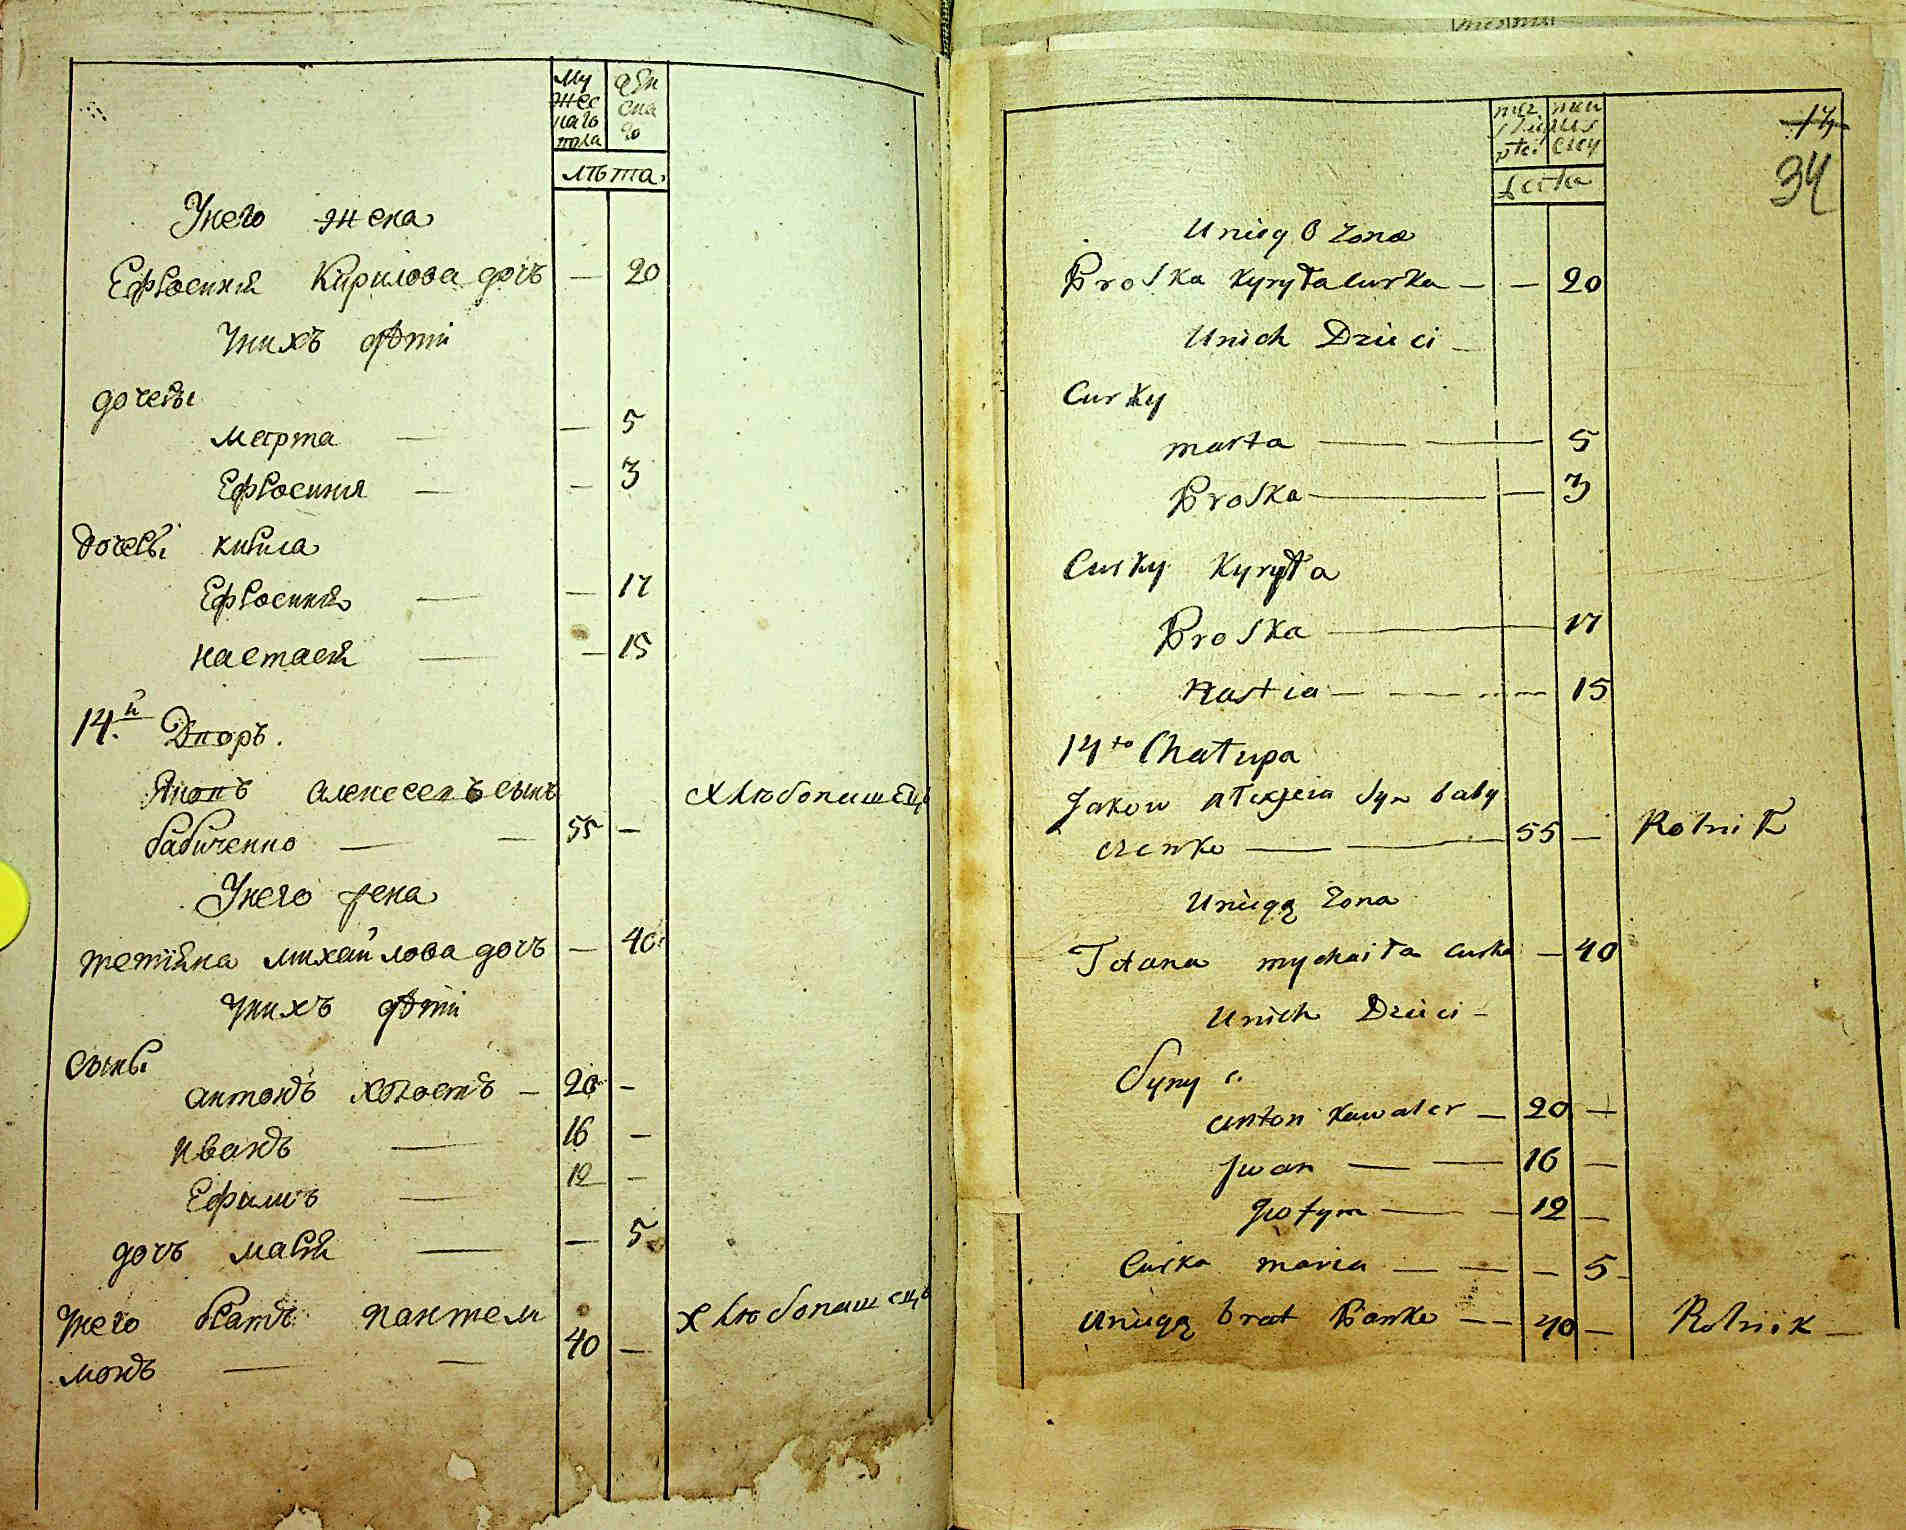 Му жес каго пола
жен ска го
лѣта
Унего жена
Ефросинія Кирилова дочь — 20
Унихъ дѣти
дочеры
марта — — 5
Ефросиния — — 3
дочеры кирила
Ефросинія — — 17
настасія — — 15
14.й Дворъ.
Яковъ Алексеевъ сынъ хлѣбопашецъ
бабиченко — — 55 —
Унего жена
тетіяна михайлова дочь — 40
Унихъ дѣти
сыны
антонъ холостъ — 20 —
иванъ — 16 —
Ефимъ — 12 —
дочь марія — — 5
Унего братъ пантели хлѣбопашецъ
монъ — — 40 —
14
34
Latka
Uniego zona
Proska Kyryła curka — — 20
Unich Dzieci —
Curky
marta — — 5
Proska — — 3
Curky Kyryła
Proska — 17
Nastia — — — 15
14to Chałupa
Jakow Ałexieia Syn baby
czenko — — 55 — Rolnik
Uniego Zona
Tetiana mychaiła curka — 40
Unich Dzieci —
Syny
anton Kawaler — 20 —
Jwan — — 16 —
Jofym — — 12 —
Curka maria — — — 5 —
Uniego brat Panko — — 40 — Rolnik —